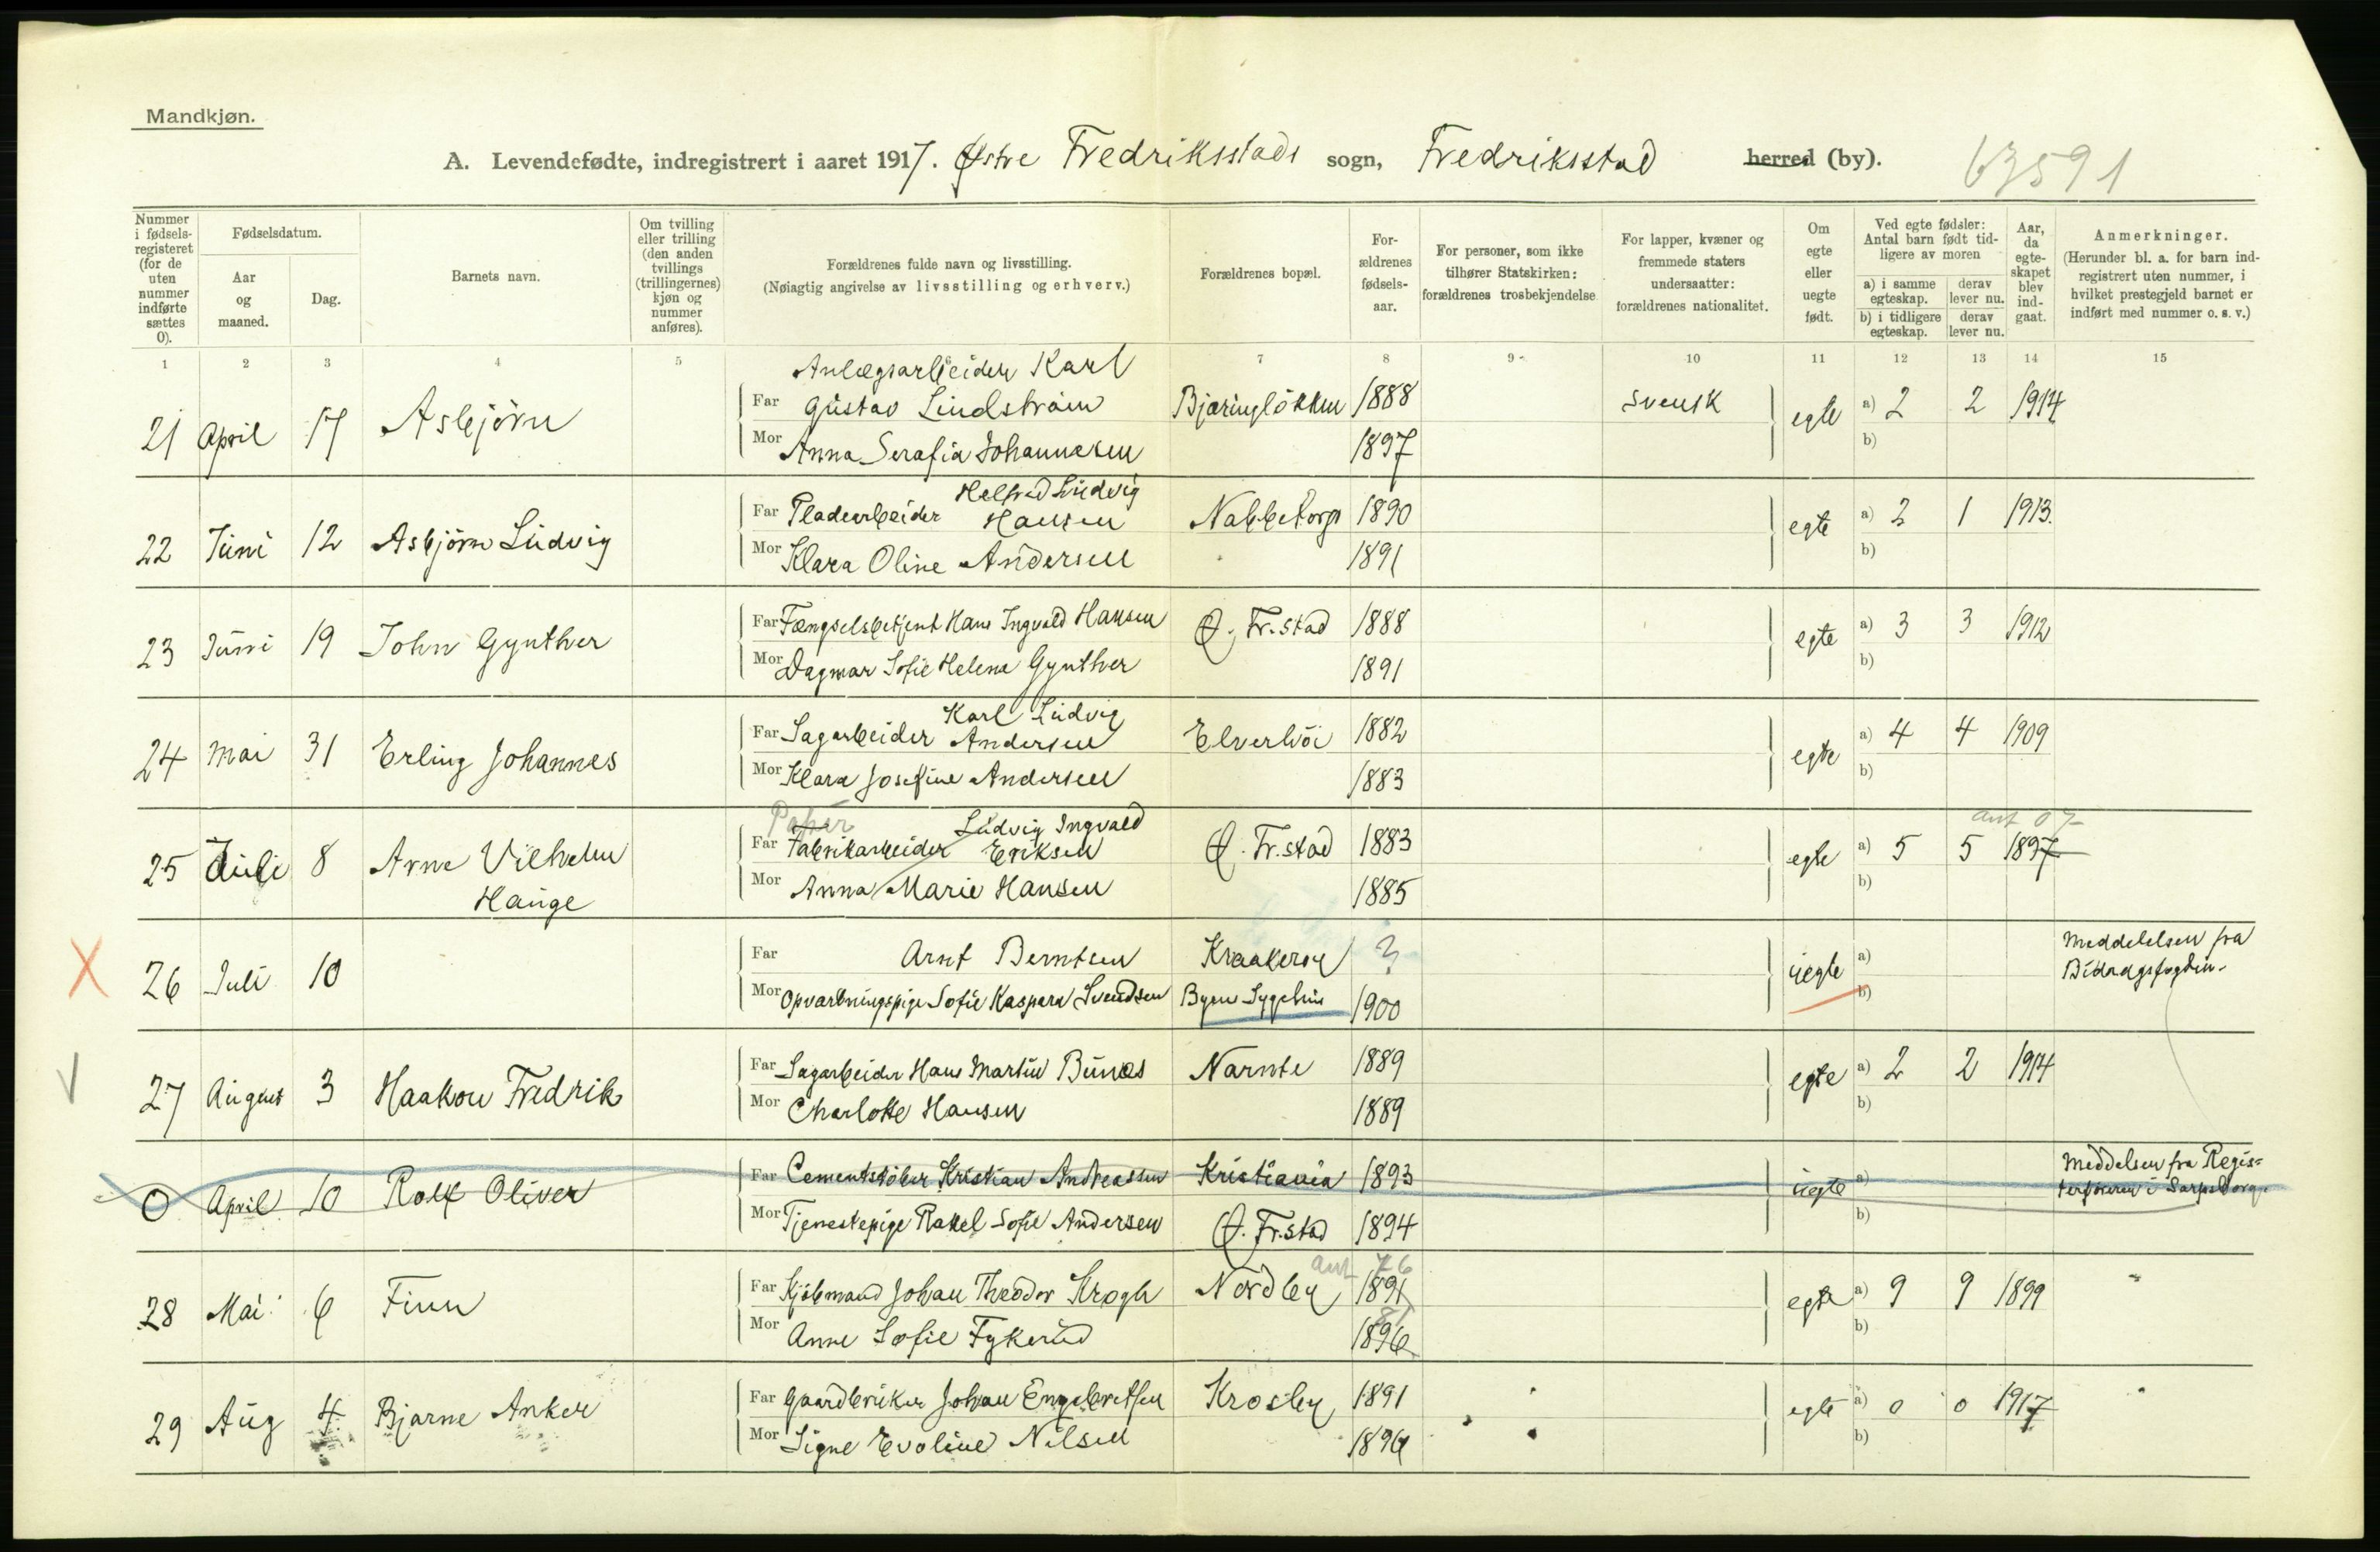 Mandkjøn.
A. Levendefødte, indregistrert i aaret 1917. Østre Fredriksstads sogn, Fredriksstad herred (by). 63591
Nummer i fødsels-registeret (for de uten nummer indførte sættes 0).
Fødselsdatum.
Aar og maaned.
Dag.
Barnets navn.
Om tvilling eller trilling (den anden tvillings (trillingernes) kjøn og nummer anføres).
Forældrenes fulde navn og livsstilling.
(Nøiagtig angivelse av livsstilling og erhverv.)
Forældrenes bopæl.
For-ældrenes fødsels-aar.
For personer, som ikke tilhører Statskirken: forældrenes trosbekjendelse
For lapper, kvæner og fremmede staters undersaatter: forældrenes nationalitet.
Om egte eller uegte født.
Ved egte fødsler: Antal barn født tid-ligere av moren
a) i samme egteskap. derav lever nu.
b) i tidligere egteskap. derav lever nu.
Aar, da egte-skapet blev ind-gaat.
Anmerkninger.
(Herunder bl. a. for barn ind-registrert uten nummer, i hvilket prestegjeld barnet er indført med nummer o. s. v.)
1 2 3 4 5 6 7 8 9 10 11 12 13 14 15
Anlægsarbeider Karl
Far Gustav Lindstrøm Bjæringløkken 1888 svensk
21 April 17 Asbjörn egte a) 2 2 1914
Mor Anna Serafia Johannesen 1897 b)
Helfred Ludvig
Far Pladearbeider Hansen Nabbetorp 1890
22 Juni 12 Asbjörn Ludvig egte a) 2 1 1913.
Mor Klara Oline Andersen 1891 b)
Far Fængselsbetjent Hans Ingvald Hansen Ø. Fr.stad 1888
23 Juni 19 John Gynther egte a) 3 3 1912
Mor Dagmar Sofie Helene Gynther 1891 b)
Karl Ludvig
Far Sagarbeider Andersen Elverhöi 1882
24 Mai 31 Erling Johannes egte a) 4 4 1909
Mor Klara Josefine Andersen 1883 b)
Papir Ludvig Ingvald ant 07
Far Fabrikarbeider Eriksen Ø. Fr.stad 1883
25 Juli 8 Arne Vilhelm egte a) 5 5 1897
Hauge
Mor Anna Marie Hansen 1885 b)
Far Arnt Berntsen Kraakeröy ? Meddelelsen fra
26 Juli 10 uegte a) Bidragsfogden.
Mor Opvartningspige Sofie Kaspara Svendsen Byens Sygehus 1900 b)
Far Sagarbeider Hans Martin Bunæs Narnte 1889
27 August 3 Haakon Fredrik egte a) 2 2 1914
Mor Charlotte Hansen 1889 b)
Far Cementstöber Kristian Andreassen Kristiania 1893 Meddelsen fra Regis-
0 April 10 Rolf Oliver uegte a) terföreren i Sarpsborg.
Mor Tjenestepige Rakel Sofie Andersen Ø. Fr.stad 1894 b)
ant 76
Far Kjöbmand Johan Theodor Krogh Nordby 1891
28 Mai 6 Finn egte a) 9 9 1899 "
81
Mor Anne Sofie Fykerud 1896 b)
Far Gaardbruker Johan Engebretsen Krosby 1891
29 Aug 4 Bjarne Anker egte a) 0 0 1917 "
Mor Signe Evoline Nilsen 1896 b)